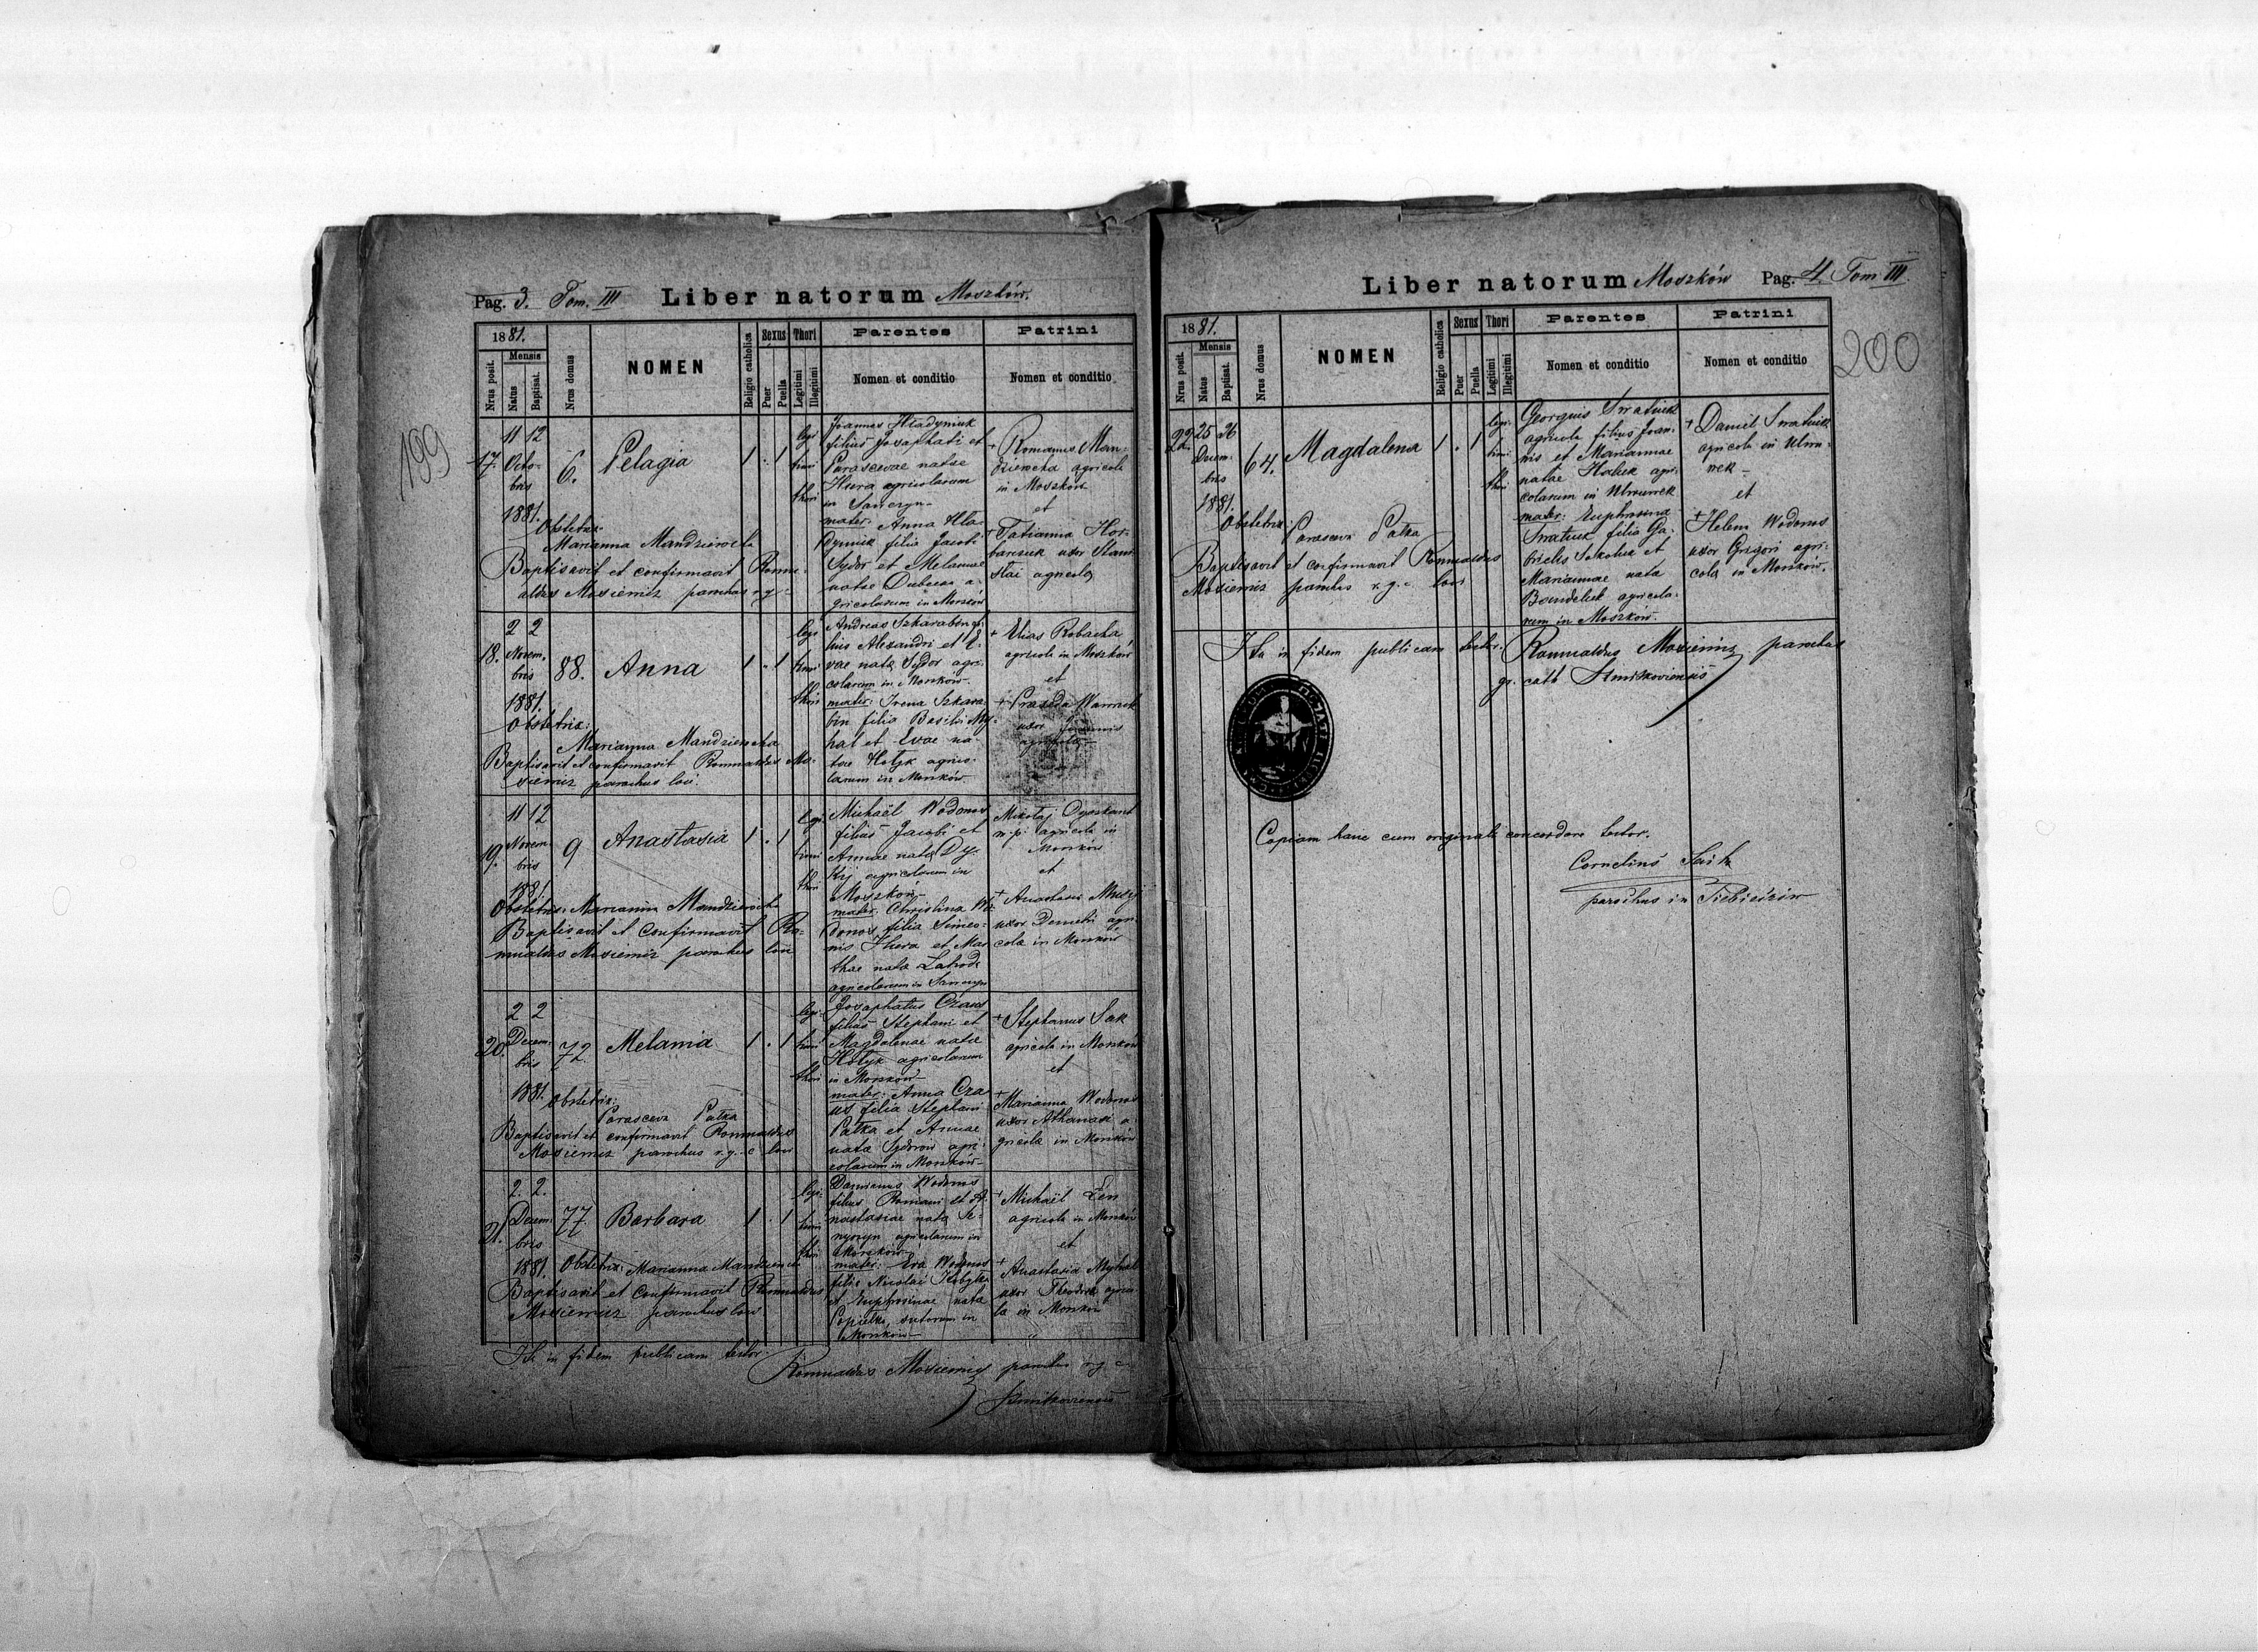 199
Pag. 3. Tom. III Liber natorum Moszków.
1881.
Nrus posit.
Mensis
Natus
Baptisat.
Nrus domus
NOMEN
Religio catholica
Sexus
Puer
Puella
Thori
Legitimi
Illegitimi
Parentes
Nomen et conditio
Patrini
Nomen et conditio
17.
11 12
Octo-
bris
1881.
6.
Pelagia
1 . 1
legi
timi
thori
Joannes Hladyniuk
filius Josaphati et
Parascevae natae
Hura agricolarum
in
mater: Anna Hla-
dyniuk filia Jacobi
Sydor et Melaniae
natae a-
gricolarum in Moszków
+ Romanus Man-
dziewcha agricola
in Moszków
et
+ Tatianna Hor-
baczuk uxor Stani
slai agricola
Obstetrix
Marianna Mandziewcha
Baptisavit et confirmavit Romu-
aldus parochus r. g. c.
18.
2 2
Novem-
bris
1881.
88.
Anna
1 . 1
legi
timi
thori
Andreas Szkarabin fi-
lius Alexandri et E-
vae nata Sydor agri-
colarum in Moszków
mater: Irena Szkara-
bin filia Basilii My-
hal et Evae na-
tae Hołyk agrico-
larum in Moszków
+ Elias Robacha
agricola in Moszków
et
+
uxor Joannis
agricola
Obstetrix:
Marianna Mandziewcha
Baptisavit et confirmavit Romualdus
parochus loci.
19.
11 12
Novem-
bris
1881.
9
Anastasia
1 . 1
legi
timi
thori
Michaël Wodonos
filius Jacobi et
Annae nata Dy-
kij agricolarum in
Moszków
mater: Christina Wo-
donos filia Simeo-
nis Hura et Mar
thae nata
agricolarum in
Mikołaj
m. p. agricola in
Moszków
et
+ Anastasia
uxor Demetri agri-
cola in Moszków
Obstetrix: Marianna Mandziewcha
Baptisavit et confirmavit Ro-
mualdus parochus loci
20.
2 2
Decem-
bris
1881.
72
Melania
1 . 1
legi
timi
thori
Josaphatus Czaus
filius Stephani et
Magdalenae natae
Hołyk agricolarum
in Moszków
mater: Anna Cza-
us filia Stephani
Pałka et Annae
nata Sydorow agri-
colarum in Moszków
+ Stephanus Sak
agricola in Moszków
et
+
Marianna Wodonos
uxor Athanasii a-
gricola in Moszków
Obstetrix:
Parasceva Pałka
Baptisavit et confirmavit Romualdus
parochus r. g. c. loci
21.
2. 2.
Decem-
bris
1881.
77
Barbara
1 . 1
legi
timi
thori
Damianus Wodonos
filius Romani et A-
nastasiae nata
agricolarum in
Moszków
mater: Eva Wodonos
filia Nicolai Kobylka
et Euphrosinae nata
in
Moszków
+ Michaël Łen
agricola in Moszków
et
+
Anastasia Myhal
uxor agrico-
la in Moszków
Obstetrix: Marianna Mandziewcha
Baptisavit et confirmavit Romualdus
parochus loci
Ita in fidem publicam testor.
Romualdus parochus r. g. c.
Liber natorum Moszków Pag. 4. Tom III
200
1881.
Nrus posit.
Mensis
Natus
Baptisat.
Nrus domus
NOMEN
Religio catholica
Sexus
Puer
Puella
Thori
Legitimi
Illegitimi
Parentes
Nomen et conditio
Patrini
Nomen et conditio
22
25 26
Decem-
bris
1881.
64.
Magdalena
1 . 1
legi-
timi
thori
Georgius
agricola filius Joan-
nis et Mariannae
natae agri-
colarum in
mater: Euphrosina
filia Ga-
brielis et
Mariannae nata
agricola-
rum in Moszków.
+ Daniel
agricola in
et
+ Helena Wodonos
uxor Grigori agri-
cola in Moszków.
Obstetrix: Parasceva Pałka
Baptisavit et confirmavit Romualdus
parochus r. g. c. loci
Ita in fidem publicam testor. Romualdus parochus
gr. cath
Copiam hanc cum originali concordare testor.
Cornelius
parochus in